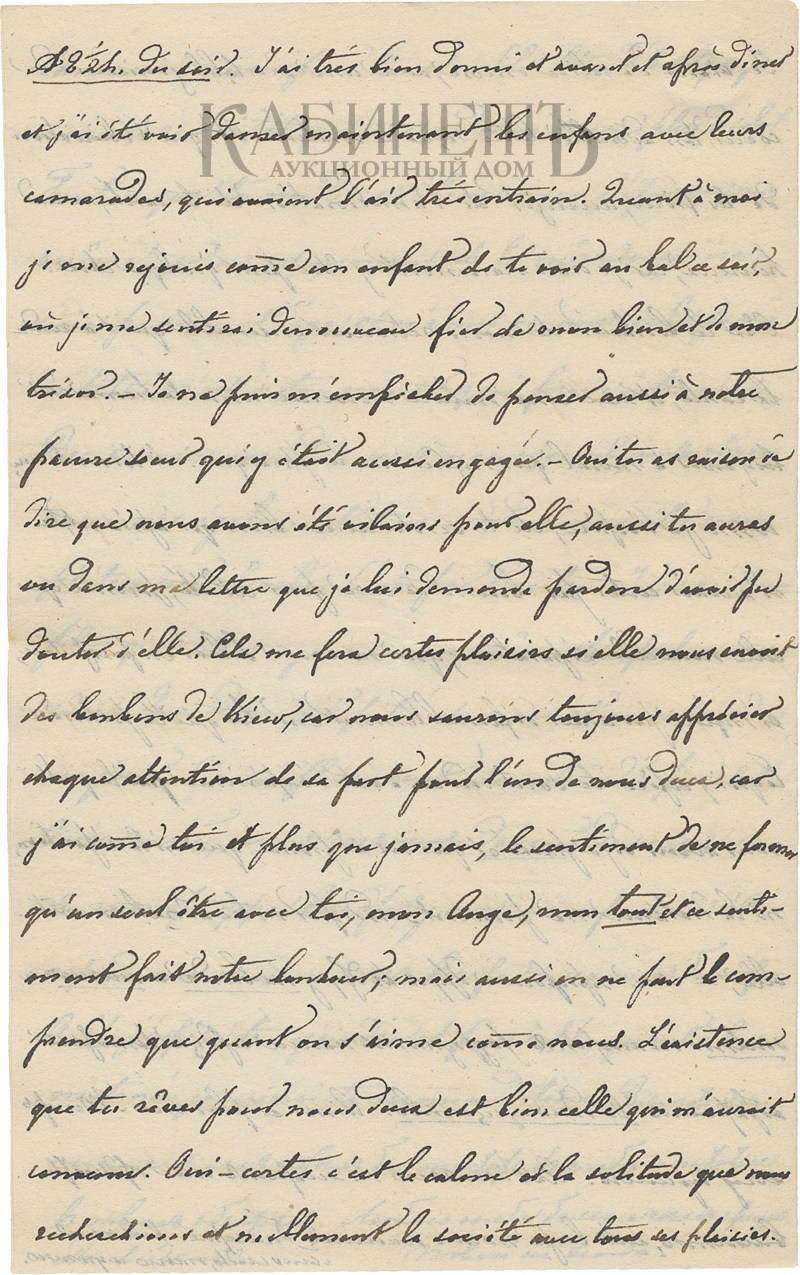 A 8 1/2 h. du soir. J'ai très bien dormi et avant et après dîner
et j'ai été voir danser maintenant les enfans avec leurs
КАБИНЕТЪ
АУКЦИОННЫЙ ДОМ
camarades, qui avaient l'air très entrain. Quant à moi
je me rejouis come un enfant de te voir au bal ce soir,
où je me sentirai de nouveau fier de mon bien et de mon
trésor. – Je ne puis m'empêcher de penser aussi à notre
pauvre soeur qui y était aussi engagée. – Oui tu as raison de
dire que nous avons été vilains pour elle, aussi tu auras
vu dans ma lettre que je lui demande pardon d'avoir pu
douter d'elle. Cela me fera certes plaisirs si elle nous envoit
des bonbons de Kiew, car nous saurons toujours apprécier
chaque attention de sa part pour l'un de nous deux, car
j'ai come toi et plus que jamais, le sentiment de ne former
qu'un seul être avec toi, mon Ange, mon tout et ce senti-
ment fait notre bonheur; mais aussi on ne peut le com-
prendre que quant on s'aime come nous. L'existence
que tu rêves pour nous deux est bien celle qui m'aurait
convenu. Oui – certes c'est le calme et la solitude que nous
recherchions et nullement la société avec tous ses plaisirs.